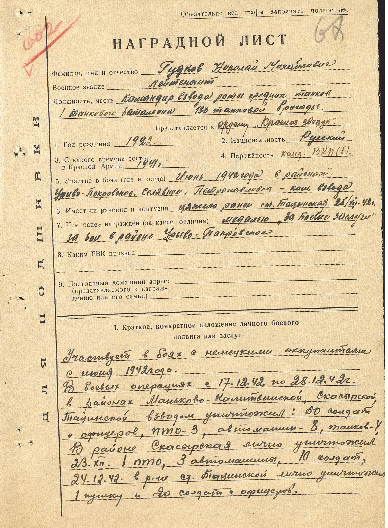 68
НАГРАДНОЙ ЛИСТ
Фамилия, имя и отчество Гудков Николай Михайлович
Военное звание Лейтенант
Должность, часть Командир взвода роты средних танков
1 танкового батальона 130 танковой бригады
Представляется к ордену Красная звезда
1. Год рождения 2. Национальность Русский
3. С какого времени состоит в Красной Армии 4. Партийность канд. ВКП(б)
5. Участие в боях (где и когда) Июнь 1942 года в районах
6. Имеет ли ранения и контузии тяжело ранен ст. Тацинская
7. Чем ранее награжден (за какие отличия) медалью „За боевые заслуги"
за бои в районе Урыво-Покровское
8. Каким РВК призван
9. Постоянный домашний адрес
представляемого к награждению или его семьи
1. Краткое, конкретное изложение личного боевого
подвига или заслуг
Участвует в боях с немецкими оккупантами
с июня 1942 года.
В боевых операциях с 17.12.42 по 28.12.42 г.
в районах Маньково-Калитвинской, Скосырской,
Тацинской взводом уничтожил: 60 солдат
и офицеров, ПТО-3, автомашин-8, танков-4
В районе Скосырская лично уничтожил
1 ПТО, 3 автомашины, 10 солдат,
24.12.42 в р-не ст. Тацинской лично уничтожил
1 пушку и 20 солдат и офицеров.
ДЛЯ ПОДШИВКИ